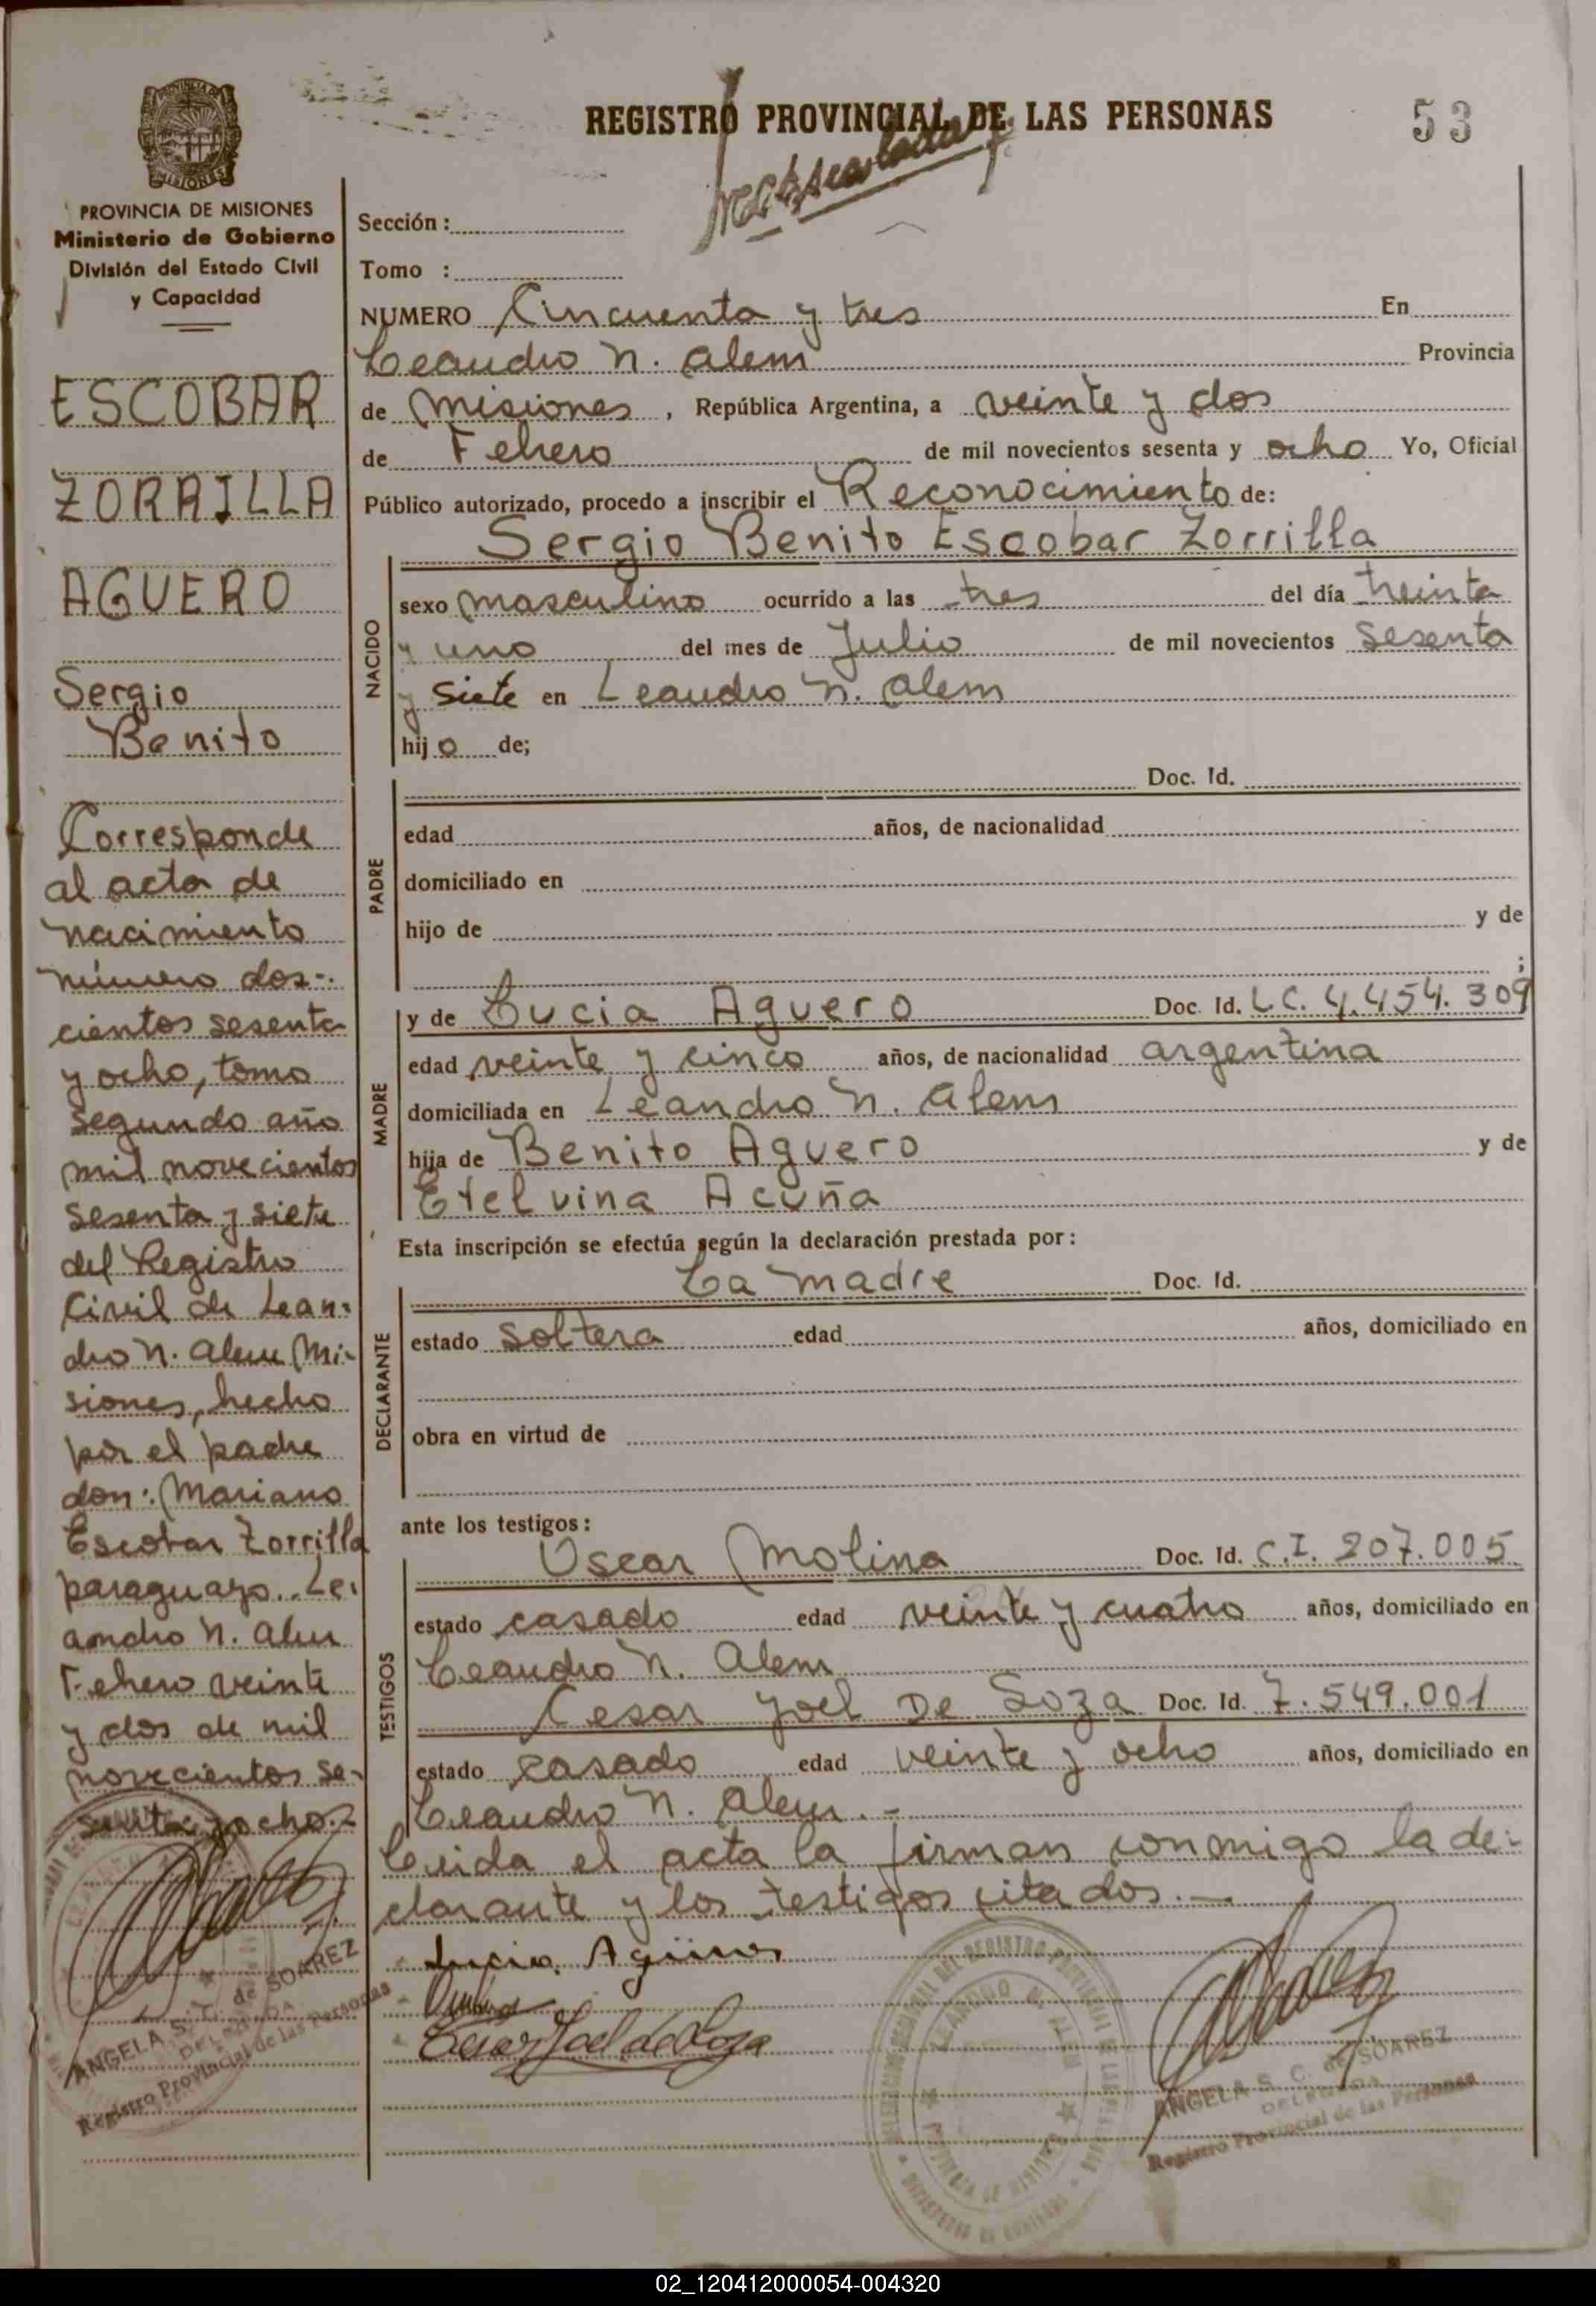 REGISTRO PROVINCIAL DE LAS PERSONAS
53
PROVINCIA DE MISIONES
Ministerio de Gobierno
División del Estado Civil
y Capacidad
ESCOBAR
ZORRILLA
AGUERO
Sergio
Benito
Corresponde
al acta de
nacimiento
número dos-
cientos sesenta
y ocho, tomo
segundo año
mil novecientos
sesenta y siete
del Registro
Civil de Lean-
dro N. Alem Mi-
siones, hecho
por el padre
don: Mariano
Escobar Zorrilla
paraguayo.. Le-
andro N. Alem
Febrero veinte
y dos de mil
novecientos se-
senta y ocho.-
ANGELA S. C. de SOAREZ
DELEGADA
Registro Provincial de las Personas
Sección :
Tomo :
NUMERO Cincuenta y tres En
Leandro N. Alem Provincia
de Misiones, República Argentina, a veinte y dos
de Febrero de mil novecientos sesenta y ocho Yo, Oficial
Público autorizado, procedo a inscribir el Reconocimiento de:
Sergio Benito Escobar Zorrilla
NACIDO
sexo masculino ocurrido a las tres del día treinta
y uno del mes de Julio de mil novecientos sesenta
y siete en Leandro N. Alem
hijo de;
PADRE
Doc. Id.
edad años, de nacionalidad
domiciliado en
hijo de y de
;
MADRE
y de Lucia Aguero Doc. Id. L.C. 4.454.309
edad veinte y cinco años, de nacionalidad argentina
domiciliada en Leandro N. Alem
hija de Benito Aguero y de
Etelvina Acuña
Esta inscripción se efectúa según la declaración prestada por :
DECLARANTE
La madre Doc. Id.
estado soltera edad años, domiciliado en
obra en virtud de
ante los testigos :
TESTIGOS
Oscar Molina Doc. Id. C.I. 207.005
estado casado edad veinte y cuatro años, domiciliado en
Leandro N. Alem
Cesar Joel De Soza Doc. Id. 7.549.001
estado casado edad veinte y ocho años, domiciliado en
Leandro N. Alem.-
Leida el acta la firman conmigo la de-
clarante y los testigos citados.-
Lucia Agüero
Cesar Joel de Soza
ANGELA S. C. de SOAREZ
DELEGADA
Registro Provincial de las Personas
02_120412000054-004320